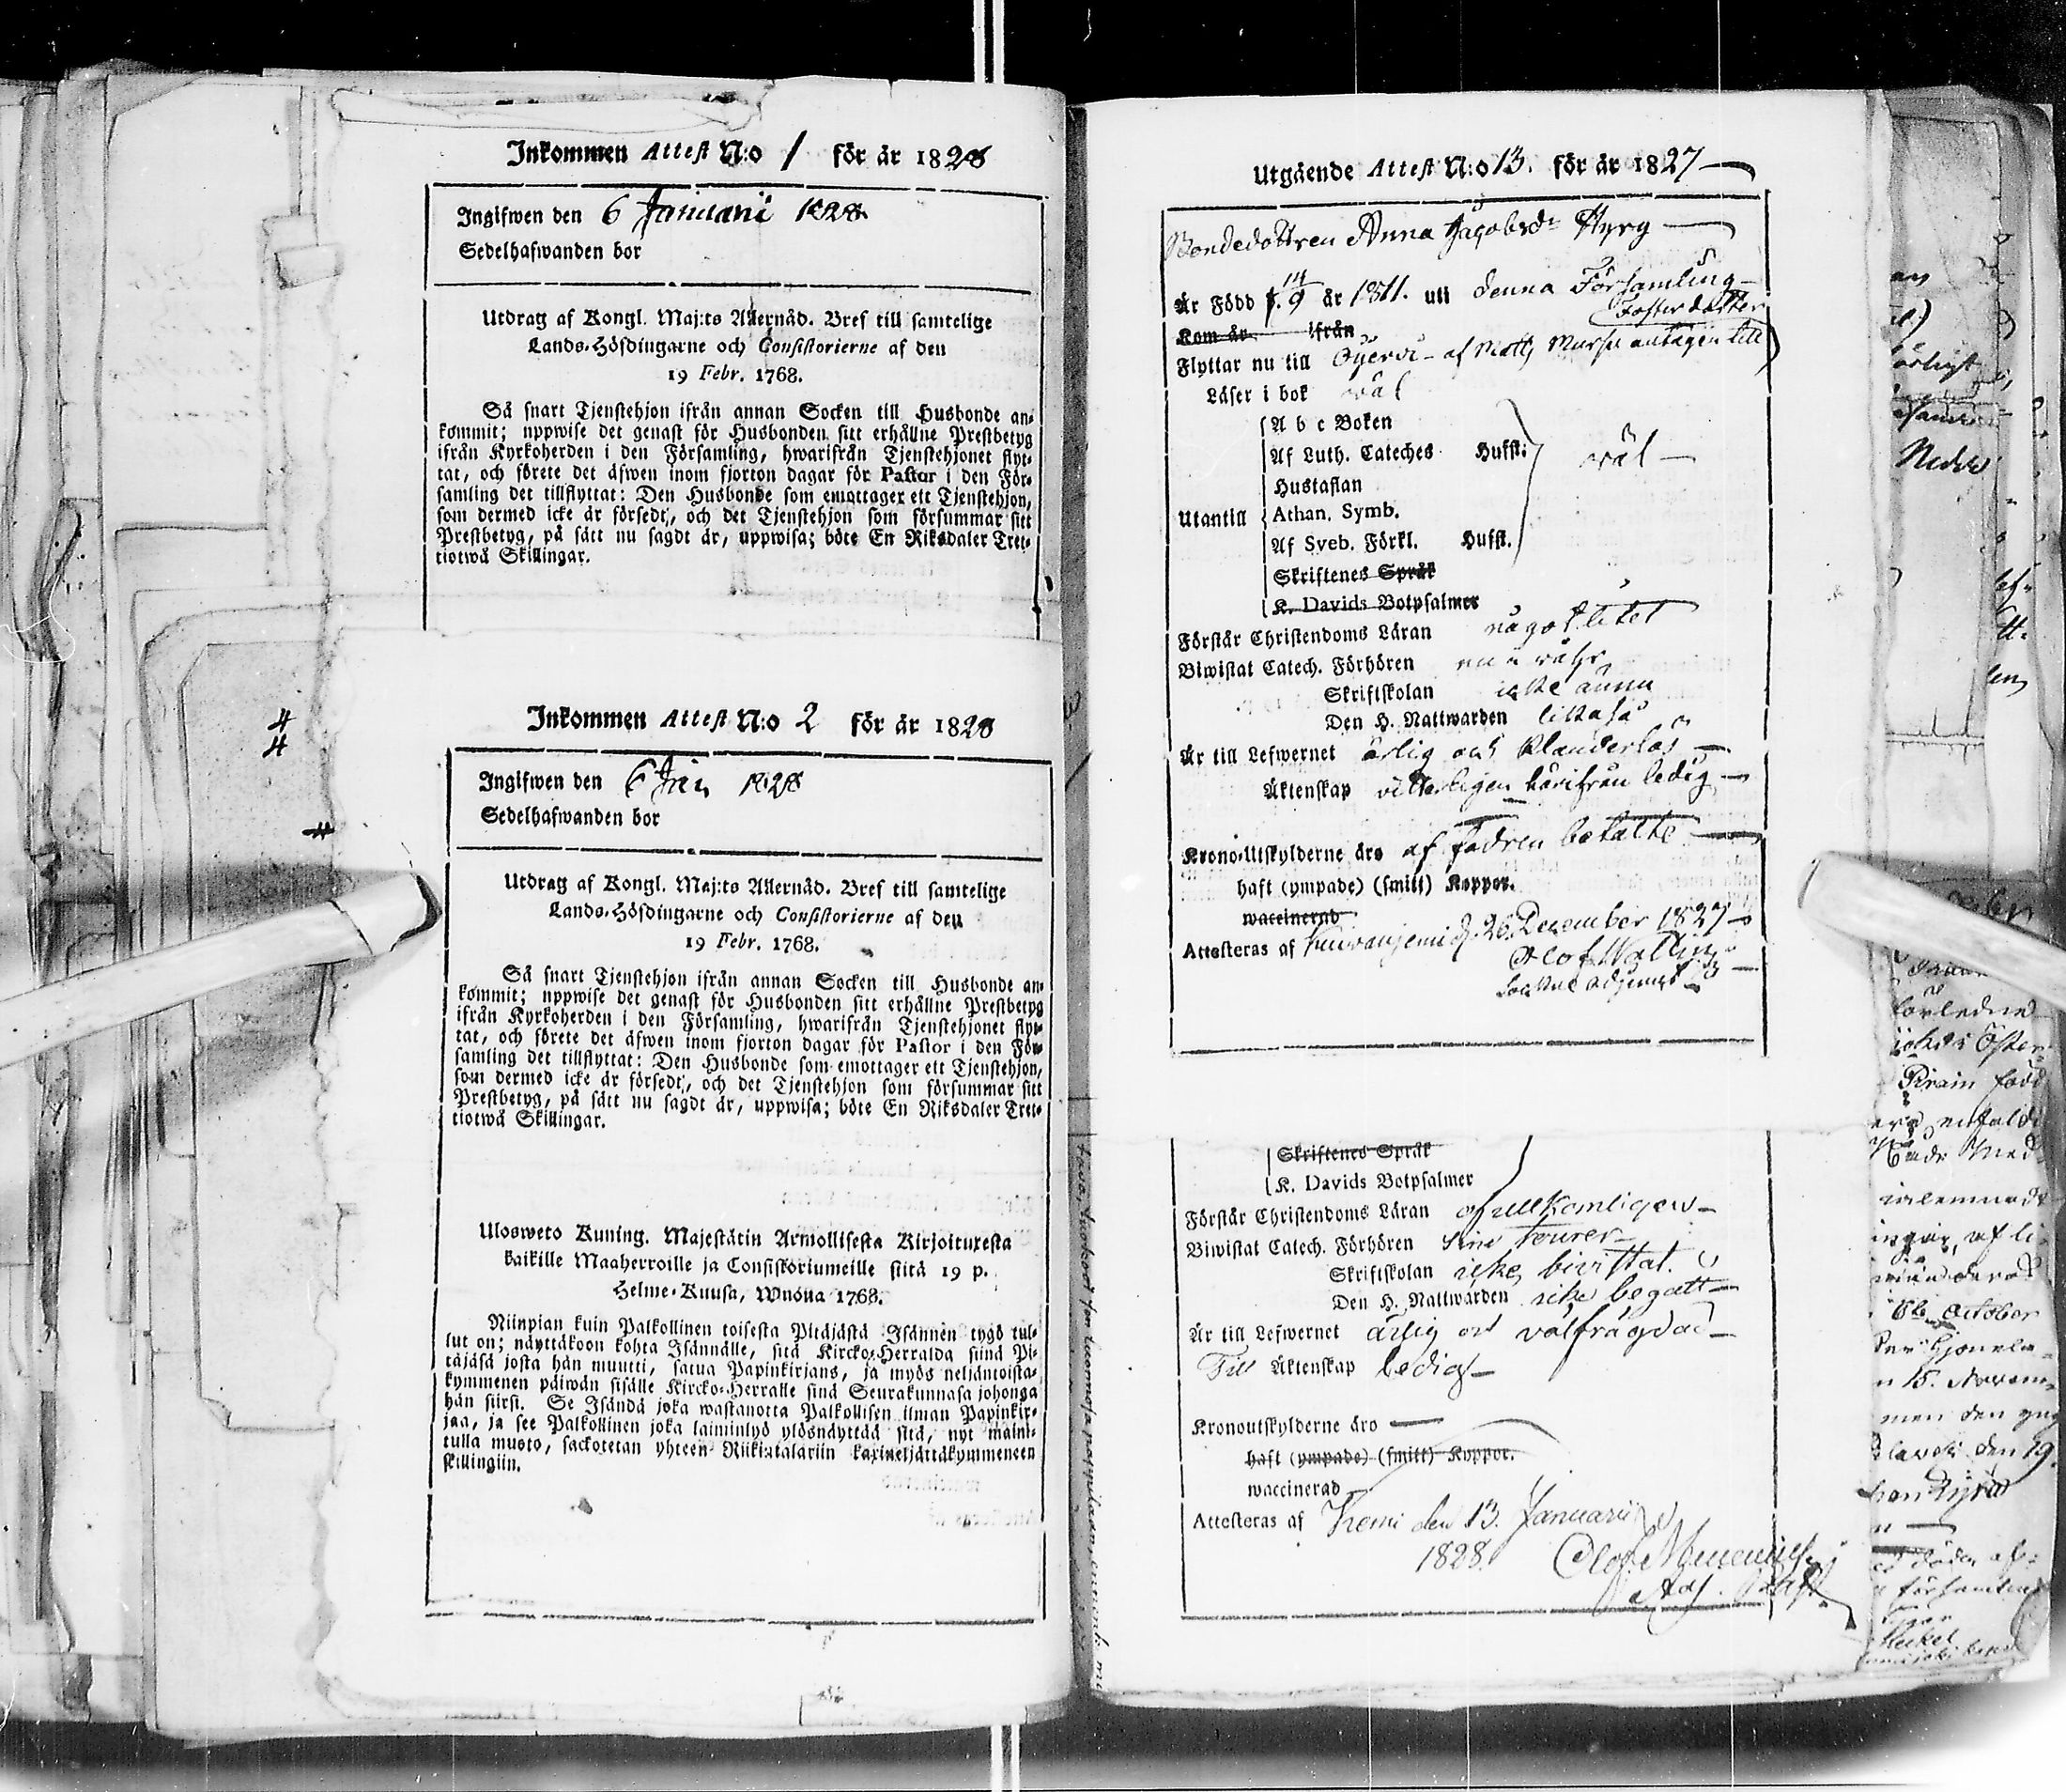 Inkommen Attest N:o 1 för år 1828
Ingifwen den 6 Januarii 1828.
Sedelhafwanden bor
Utdrag af Kongl. Maj:ts Allernåd. Bref till samtelige
Lands-Höfdingarne och Consistorierne af den
19 Febr. 1768.
Så snart Tjenstehjon ifrån annan Socken till Husbonde an-
kommit; uppwise det genast för Husbonden sitt erhållne Prestbetyg
ifrån Kyrkoherden i den Församling, hwarifrån Tjenstehjonet flyt-
tat, och förete det äfwen inom fjorton dagar för Pastor i den För-
samling det tillflyttat: Den Husbonde som emottager ett Tjenstehjon,
som dermed icke är försedt, och det Tjenstehjon som försummar sitt
Prestbetyg, på sätt nu sagdt är, uppwisa; böte En Riksdaler Tret-
tiotwå Skillingar.
4
4
Inkommen Attest N:o 2 för år 1828
Ingifwen den 6 Jan 1828
Sedelhafwanden bor
Utdrag af Kongl. Maj:ts Allernåd. Bref till samtelige
Lands-Höfdingarne och Consistorierne af den
19 Febr. 1768.
Så snart Tjenstehjon ifrån annan Socken till Husbonde an-
kommit; uppwise det genast för Husbonden sitt erhållne Prestbetyg
ifrån Kyrkoherden i den Församling, hwarifrån Tjenstehjonet flyt-
tat, och förete det äfwen inom fjorton dagar för Pastor i den För-
samling det tillflyttat: Den Husbonde som emottager ett Tjenstehjon,
som dermed icke är försedt, och det Tjenstehjon som försummar sitt
Prestbetyg, på sätt nu sagdt är, uppwisa; böte En Riksdaler Tret-
tiotwå Skillingar.
Ulosweto Kuning. Majestätin Armollisesta Kirjoituxesta
kaikille Maaherroille ja Consistoriumeille siitä 19 p.
Helme-Kuusa, Wuonna 1768.
Niinpian kuin Palkollinen toisesta Pitäjästä Isännen tygö tul-
lut on; näyttäköön kohta Isännälle, sitä Kircko-Herralda siinä Pi-
täjäsä josta hän muutti, saatua Papinkirjans, ja myös neljäntoista-
kymmenen päiwän sisälle Kircko-Herralle siinä Seurakunnasa johonga
hän siirsi. Se Isändä joka wastanotta Palkollisen ilman Papinkir-
jaa, ja see Palkollinen joka laiminlyö ylösnäyttää sitä, nyt maini-
tulla muoto, sackotetan yhteen Riikintalariin kaxineljättäkymmeneen
skillingiin.
Utgående Attest N:o 13. för år 1827
Bondedottren Anna Jacobsdr Kyrg
Är Född d. 14/9 år 1811. uti denna Församling
Kom år ifrån Fosterdotter
Flyttar nu till Öfverv af Matts Mursu antagen till
Läser i bok wäl
A b c Boken
Af Luth. Cateches Hufst: wäl
Hustaflan
Utantill Athan. Symb.
Af Sveb. Förkl. Hufst.
Skriftenes Språk
K. Davids Botpsalmer
Förstår Christendoms Läran något litet
Biwistat Catech. Förhören
Skriftskolan icke ännu
Den H. Nattwarden likaså
Är till Lefwernet ärlig och klanderlös
Äktenskap vitterligen härifrån ledig
Krono-Utskylderne äro af fadren betalte
haft (ympade) (smitt) Koppor.
waccinerad
Attesteras af d. 26 December 1827
Olof Wallin
Adjunct
Skriftenes Språk
K. Davids Botpsalmer
Förstår Christendoms Läran ofullkomligen
Biwistat Catech. Förhören sine tourer
Skriftskolan icke bivistat.
Den H. Nattwarden icke begått
Är till Lefwernet ärlig och välfrägdad
Till Äktenskap ledig
Kronoutskylderne äro
haft (ympade) (smitt) Koppor.
waccinerad
Attesteras af Kemi den 13. Januarii
1828.
Olof
Adj.